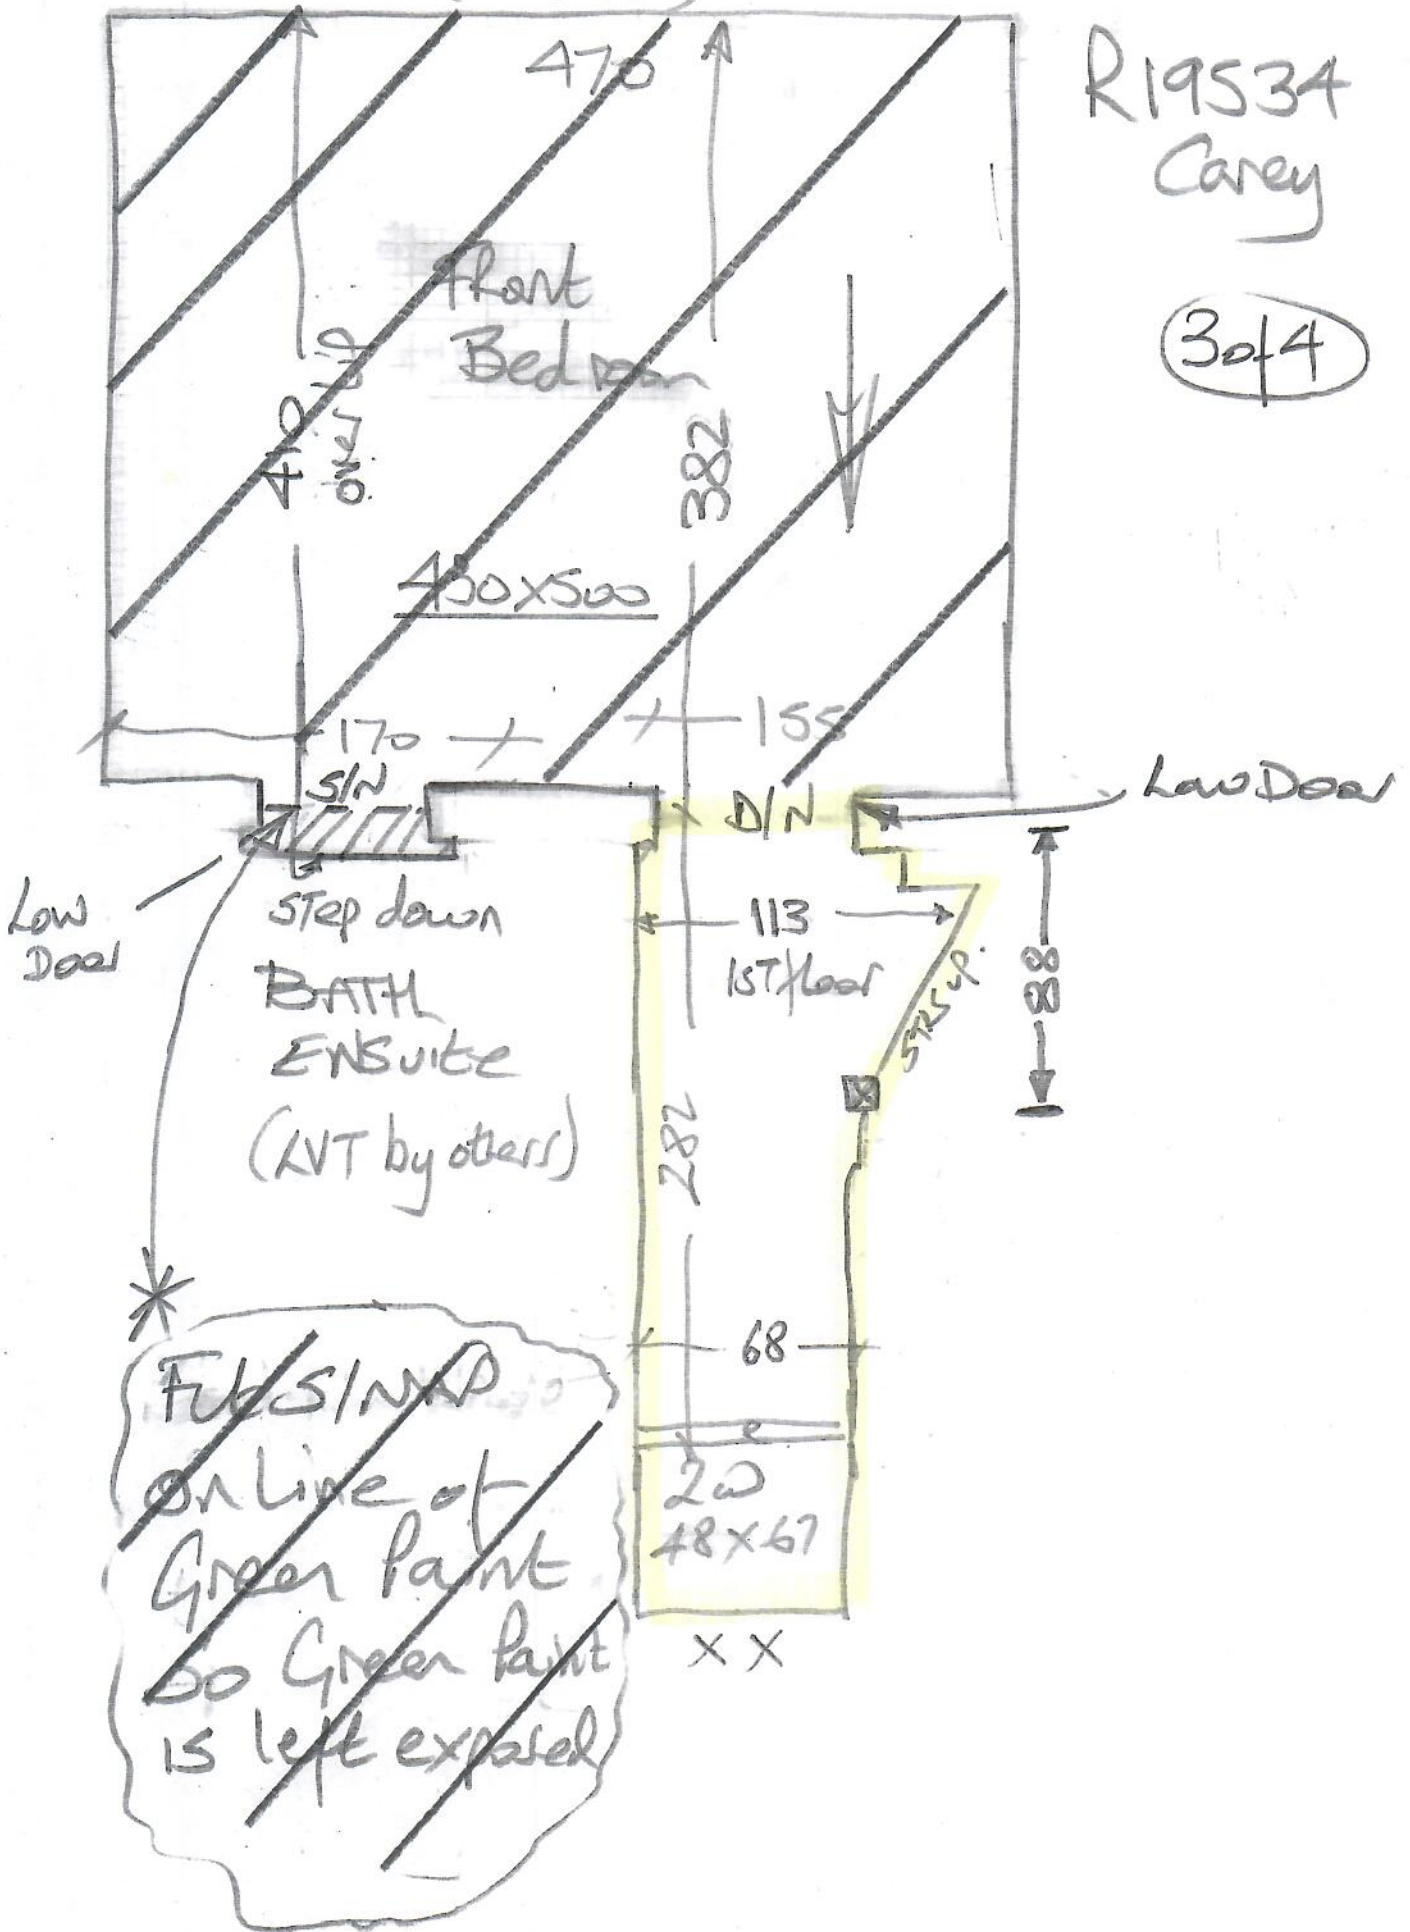 470
R19534
Carey
3of4
Front
Bedroom
410
over LIP
382
400x500
170
155
S/N
D/N
Low Door
Low
Door
Step down
BATH
ENSuite
(LVT by others)
113
1ST floor
STRS up.
88
282
68
e
2W
48x67
XX
on Line of
Green Paint
so Green Paint
is left exposed